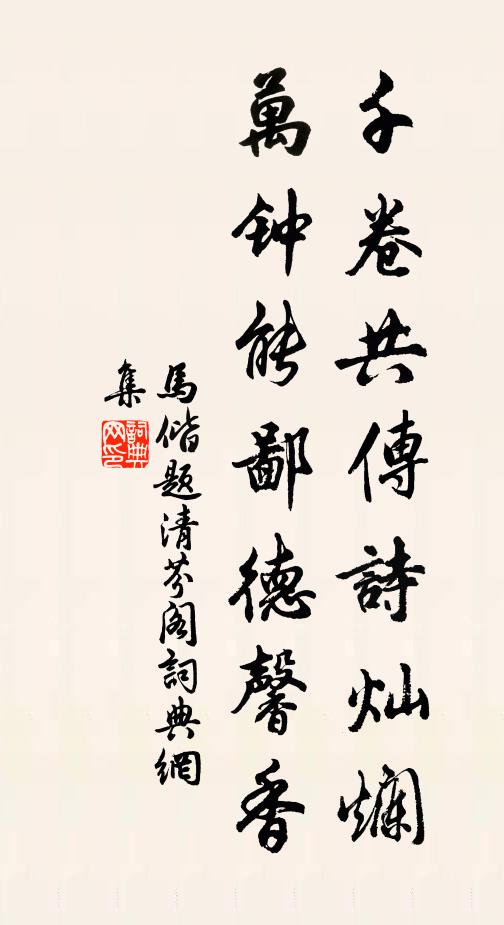 千卷共傳詩灿爛
萬钟能鄙德馨香
馬偕題清芬阁詞典網
集
詞典
网印